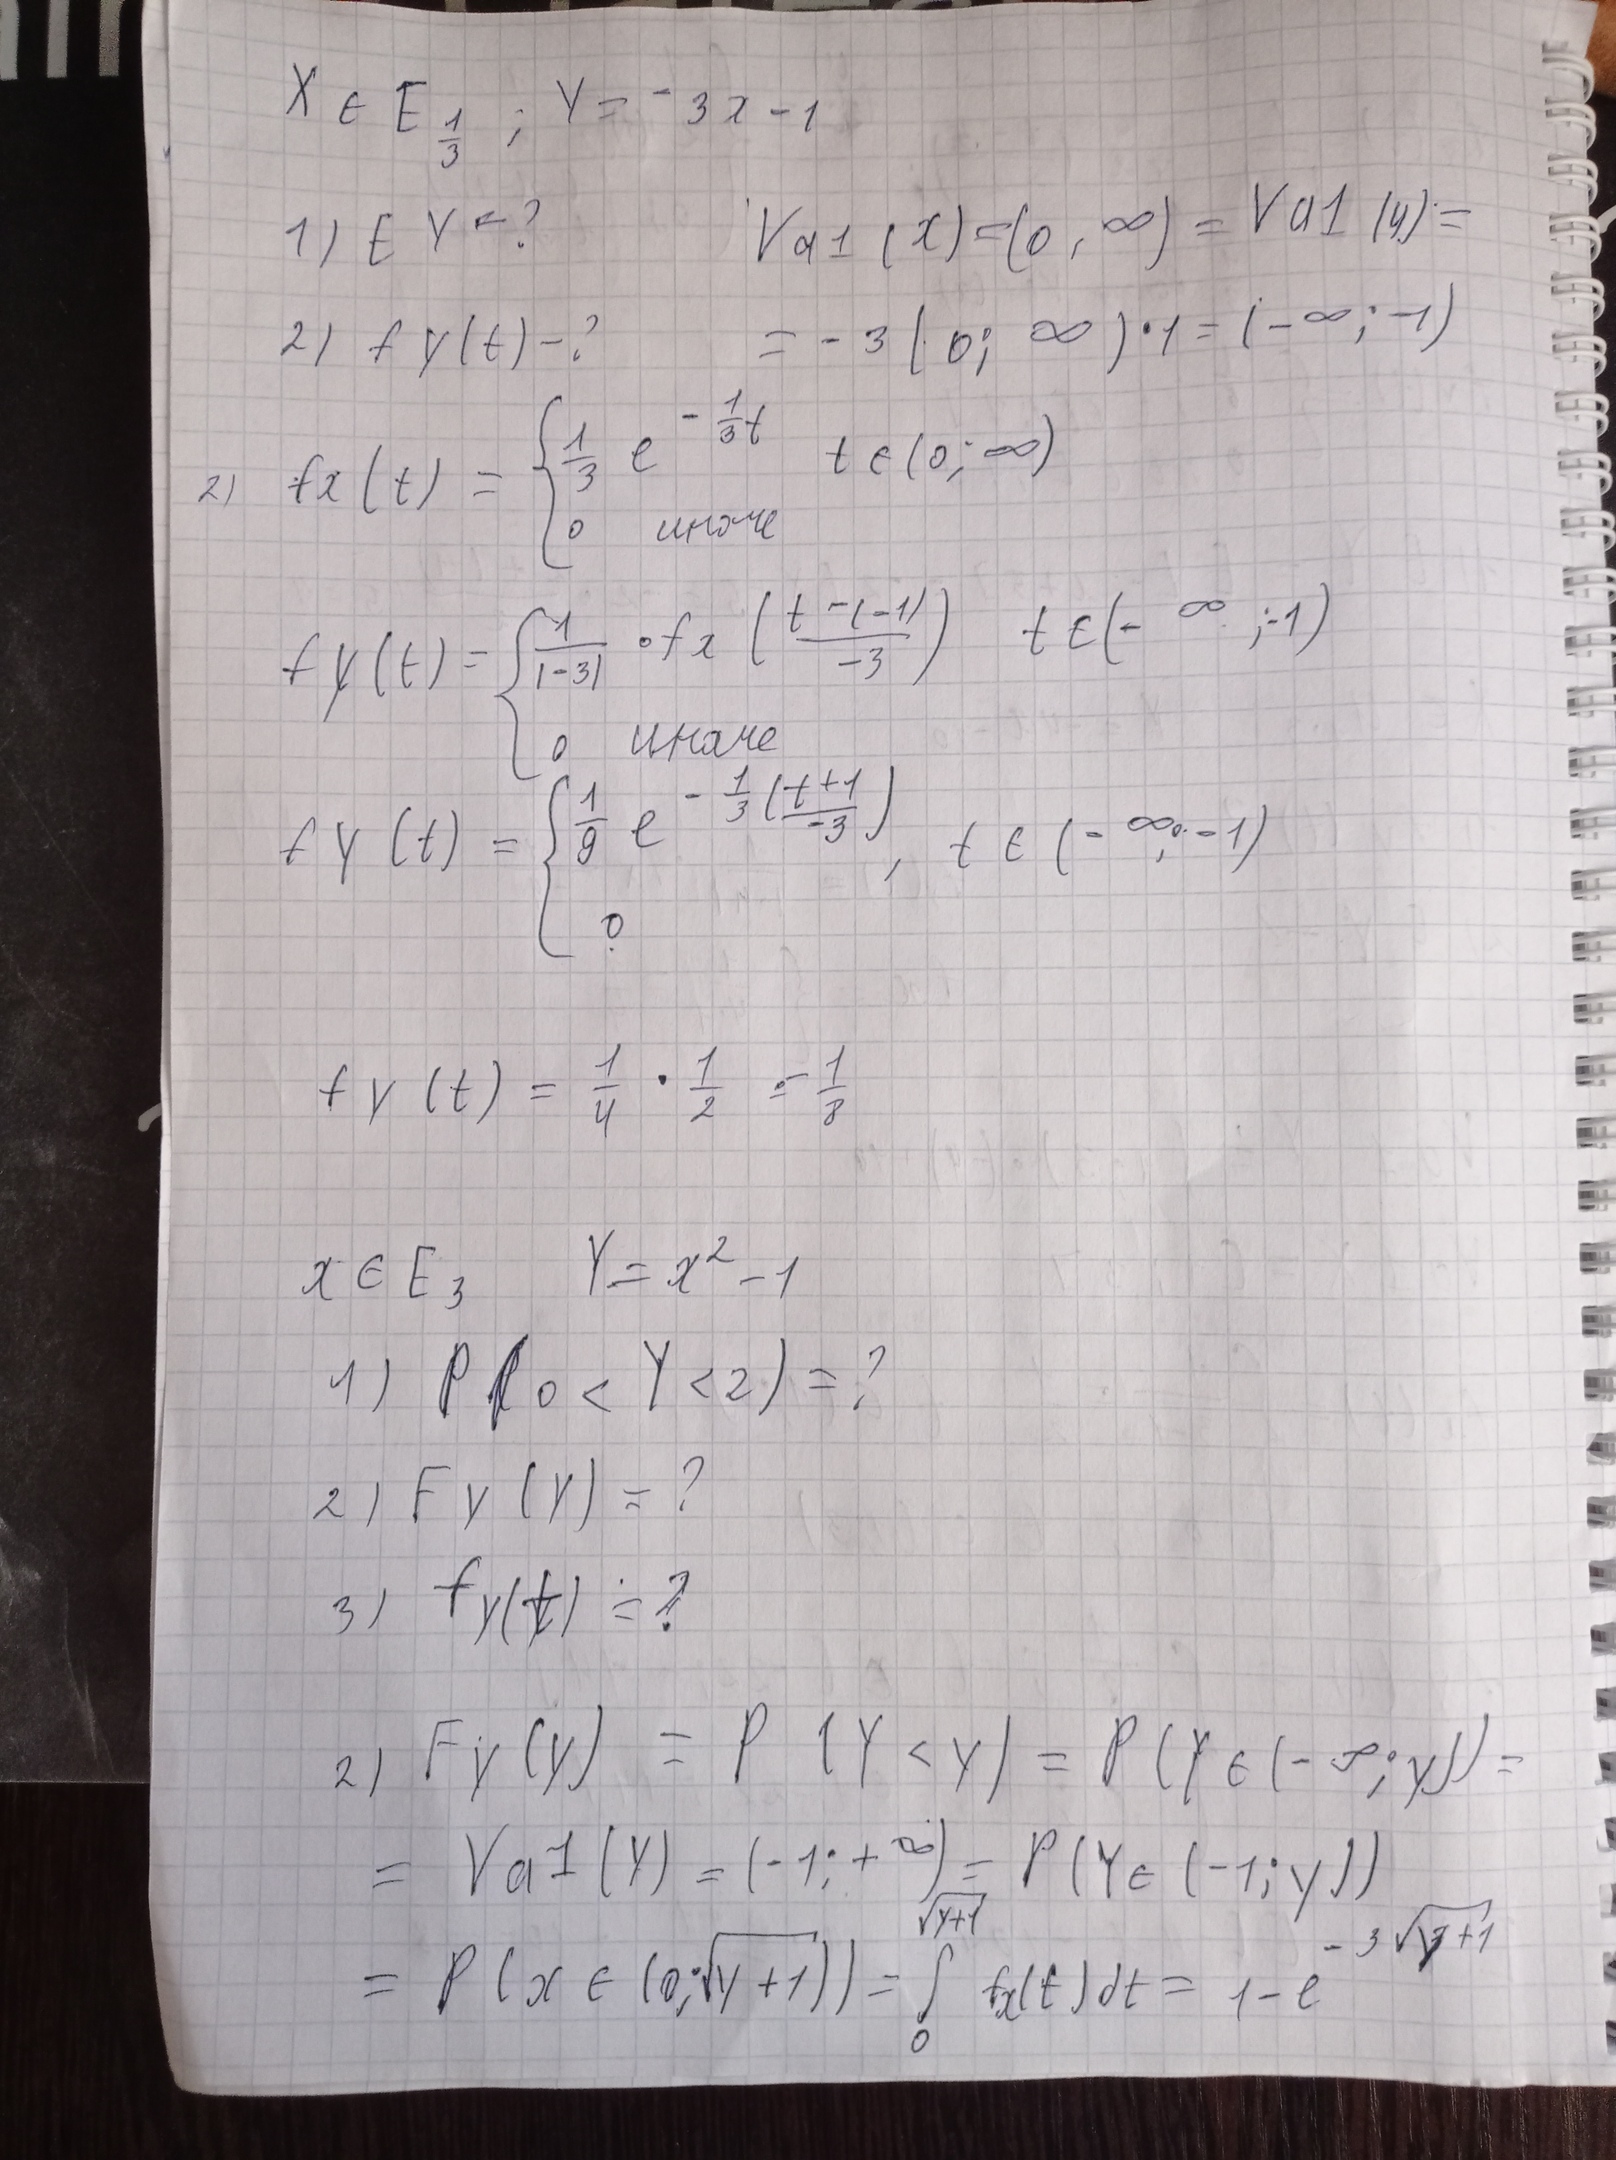 X ∈ E_{1/3} ; Y = -3x - 1
1) E Y = ? Val (x) = (0, ∞) = Val (y) =
2) f y(t) - ? = -3 (0; ∞) · 1 = (-∞; -1)
2) fx(t) = { 1/3 e^{-1/3 t} t ∈ (0; ∞)
0 иначе
f y(t) = { 1/|-3| · fx ( (t-(-1))/-3 ) t ∈ (-∞; -1)
0 иначе
f y(t) = { 1/9 e^{-1/3 ((t+1)/-3)}, t ∈ (-∞; -1)
0
f y(t) = 1/4 · 1/2 = 1/8
x ∈ E_3 Y = x² - 1
1) P(0 < Y < 2) = ?
2) F y (y) = ?
3) f y(t) = ?
2) F y (y) = P (Y < y) = P(Y ∈ (-∞; y)) =
= Val (Y) = (-1; +∞) = P(Y ∈ (-1; y))
= P(x ∈ (0; √(y+1))) = ∫_0^{√(y+1)} fx(t) dt = 1 - e^{-3√(y+1)}